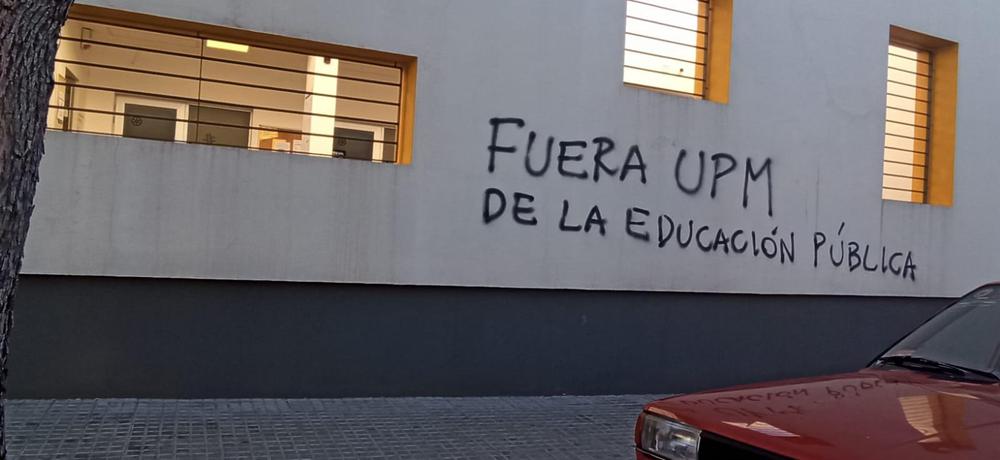 FUERA UPM
DE LA EDUCACIÓN PÚBLICA